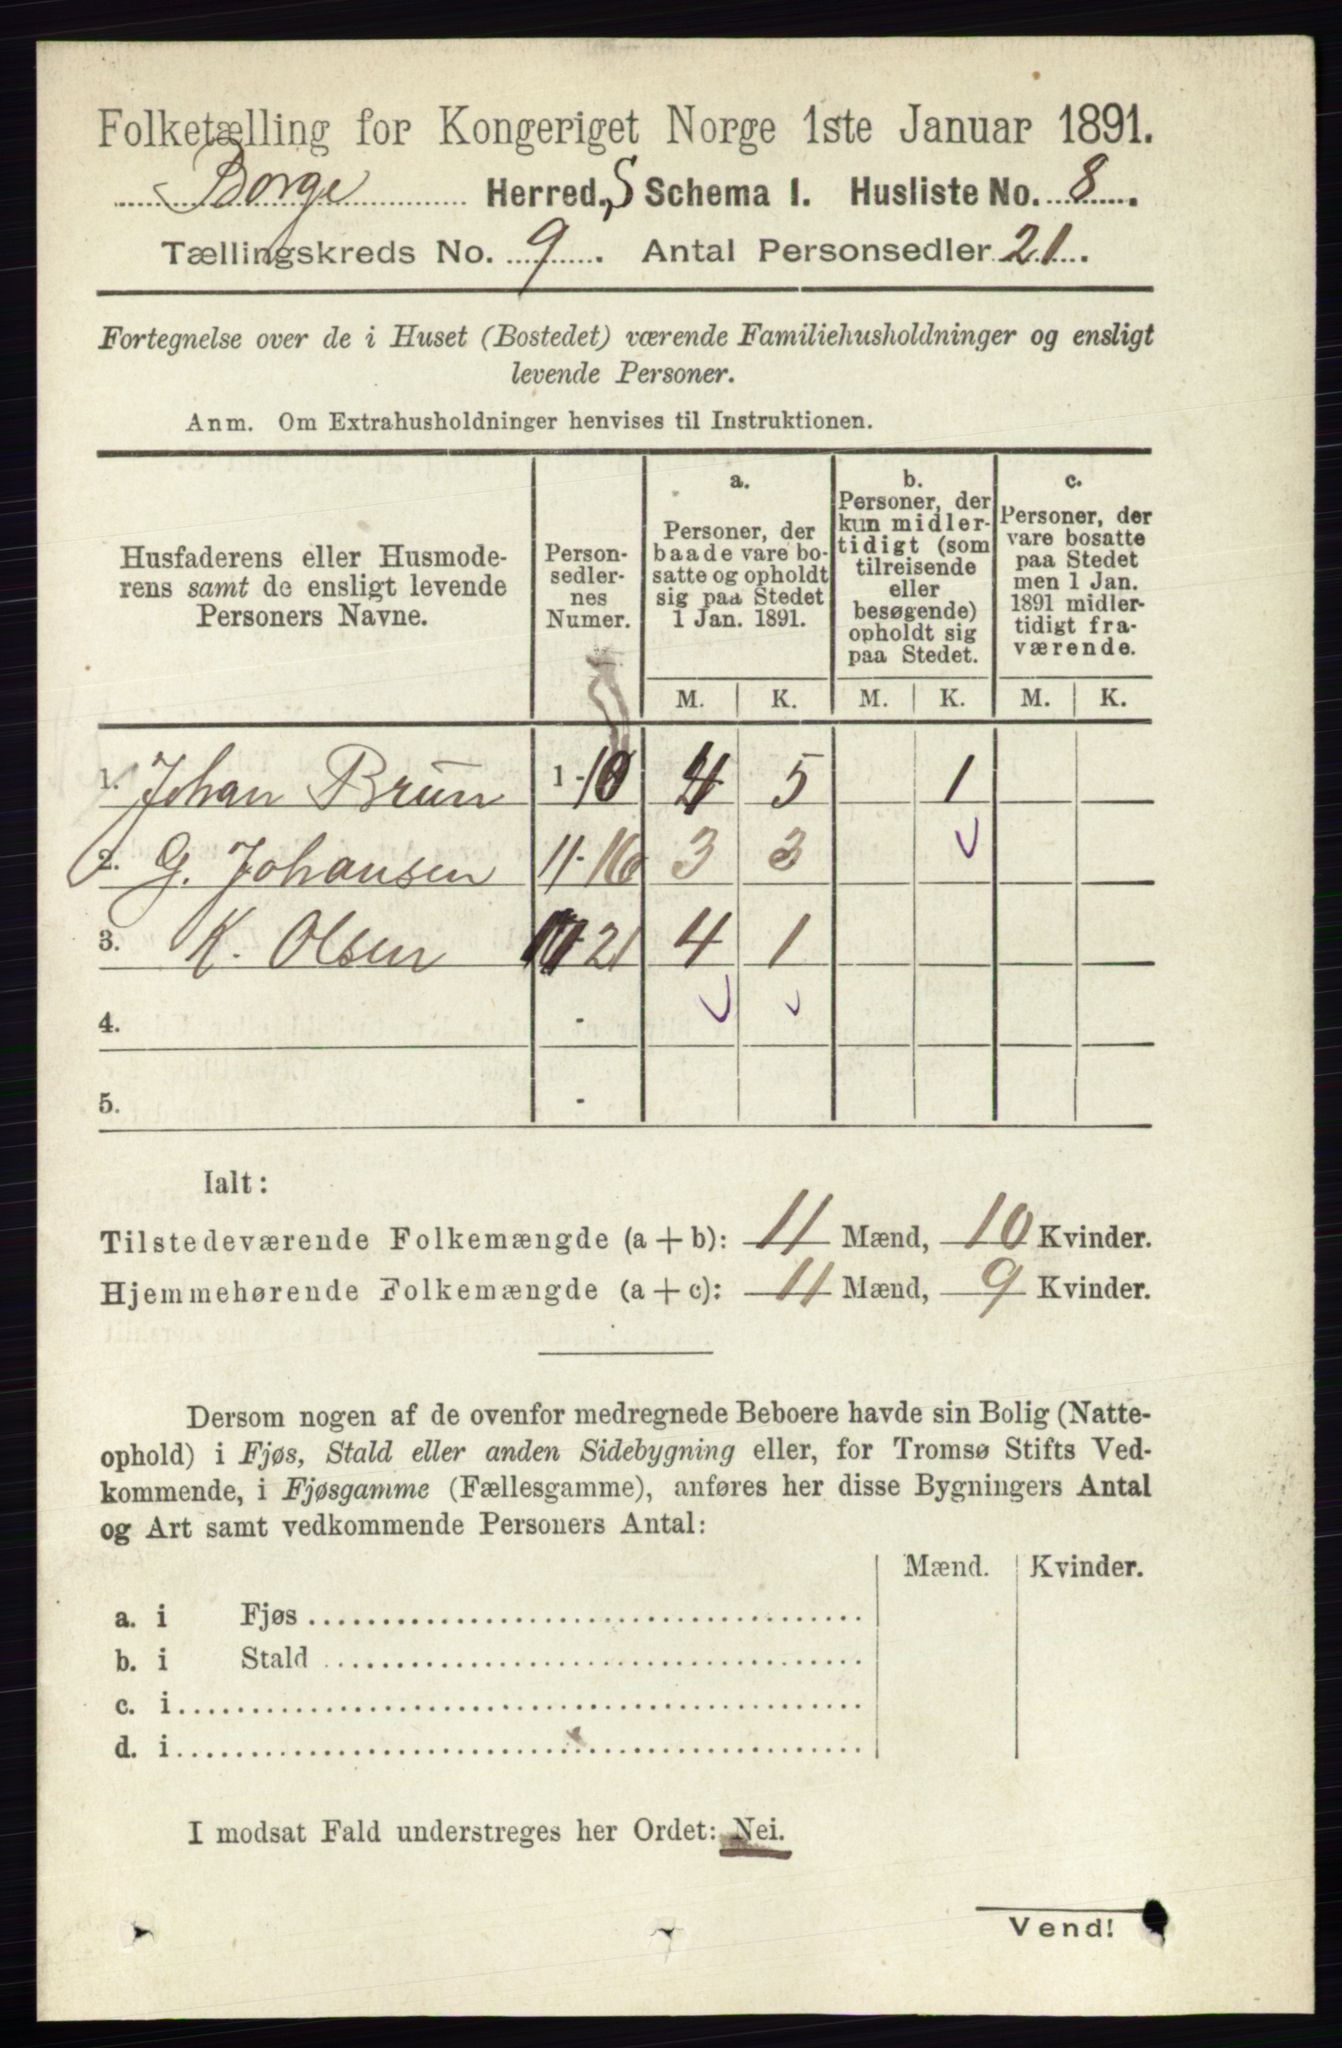 Folketælling for Kongeriget Norge 1ste Januar 1891.
Borge Herred, S Schema 1. Husliste No. 8.
Tællingskreds No. 9. Antal Personsedler 21.
Fortegnelse over de i Huset (Bostedet) værende Familiehusholdninger og ensligt
levende Personer.
Anm. Om Extrahusholdninger henvises til Instruktionen.
Husfaderens eller Husmode-
rens samt de ensligt levende
Personers Navne.
Person-
sedler-
nes
Numer.
a.
Personer, der
baade vare bo-
satte og opholdt
sig paa Stedet
1 Jan. 1891.
b.
Personer, der
kun midler-
tidigt (som
tilreisende
eller
besøgende)
opholdt sig
paa Stedet.
c.
Personer, der
vare bosatte
paa Stedet
men 1 Jan.
1891 midler-
tidigt fra-
værende.
M. K. M. K. M. K.
1. Johan Brun 1-10 4 5 1
2. G. Johansen 11-16 3 3
3. K. Olsen 21 4 1
4. -
5. -
Ialt:
Tilstedeværende Folkemængde (a + b): 11 Mænd, 10 Kvinder.
Hjemmehørende Folkemængde (a + c): 11 Mænd, 9 Kvinder.
Dersom nogen af de ovenfor medregnede Beboere havde sin Bolig (Natte-
ophold) i Fjøs, Stald eller anden Sidebygning eller, for Tromsø Stifts Ved-
kommende, i Fjøsgamme (Fællesgamme), anføres her disse Bygningers Antal
og Art samt vedkommende Personers Antal:
Mænd. Kvinder.
a. i Fjøs
b. i Stald
c. i
d. i
I modsat Fald understreges her Ordet: Nei.
Vend!